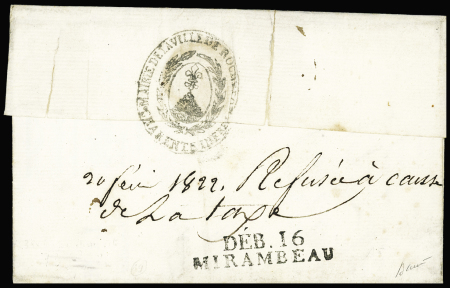 MAIRIE DE LA VILLE DE
20 fév. 1822. Refusée à cause
de La taxe
DÉB. 16
MIRAMBEAU